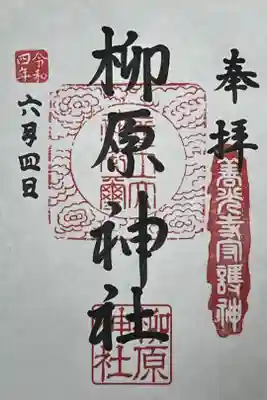 奉拝
善光寺守護神
柳原神社
柳原神社
令和四年
六月四日